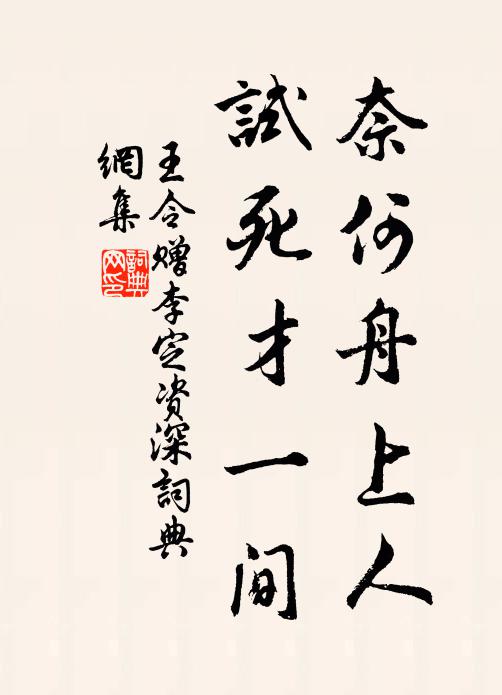 奈何舟上人
試死才一间
王令赠李定资深詞典
網集
詞典
网印